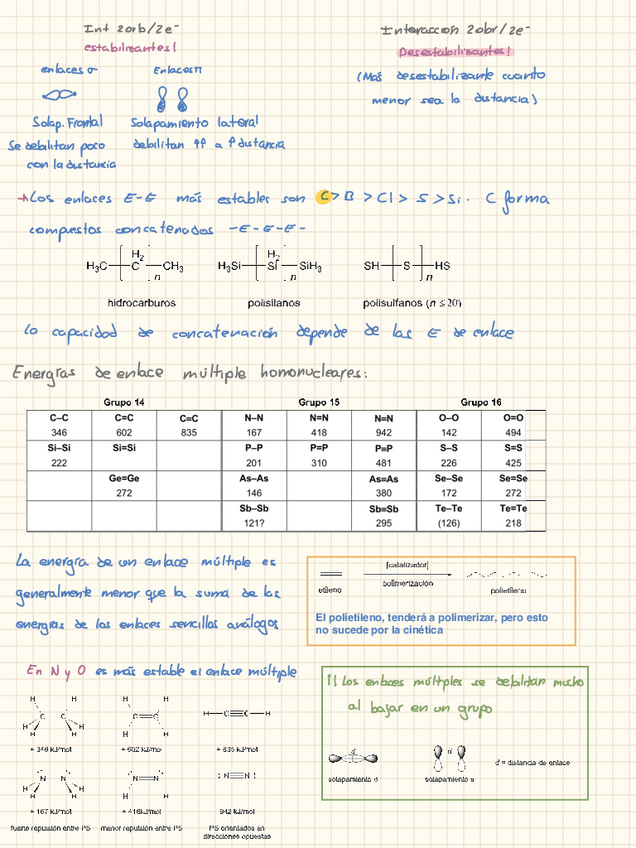 Int 2orb/2e⁻
Interacción 2obr/2e⁻
estabilizantes!
Desestabilizantes!
enlaces σ
Enlaces π
(Más desestabilizante cuanto
menor sea la distancia)
Solap. Frontal
Solapamiento lateral
Se debilitan poco
con la distancia
debilitan ⇈ a ↑ distancia
→ Los enlaces E-E más estables son C > B > Cl > S > Si. C forma
compuestos concatenados -E-E-E-
H₃C [H₂ C]n CH₃
H₃Si [H₂ Si]n SiH₃
SH [S]n HS
hidrocarburos
polisilanos
polisulfanos (n ≤ 20)
Lo capacidad de concatenación depende de las E de enlace
Energías de enlace múltiple homonucleares:
Grupo 14 Grupo 15 Grupo 16
C–C C=C C≡C N–N N=N N≡N O–O O=O
346 602 835 167 418 942 142 494
Si–Si Si=Si P–P P=P P≡P S–S S=S
222 201 310 481 226 425
Ge=Ge As–As As≡As Se–Se Se=Se
272 146 380 172 272
Sb–Sb Sb≡Sb Te–Te Te=Te
121? 295 (126) 218
La energía de un enlace múltiple es
generalmente menor que la suma de las
energías de los enlaces sencillos análogos
[catalizador]
polimerización
etileno
polietileno
El polietileno, tenderá a polimerizar, pero esto
no sucede por la cinética
En N y O es más estable el enlace múltiple
!! Los enlaces múltiples se debilitan mucho
al bajar en un grupo
H H H H H H
C C C=C H–C≡C–H
H H H H H H
+ 346 kJ/mol + 602 kJ/mol + 835 kJ/mol
d
d
d = distancia de enlace
solapamiento σ
solapamiento π
H H H
N N N=N :N≡N:
H H H
+ 167 kJ/mol + 418 kJ/mol 942 kJ/mol
fuerte repulsión entre PS
menor repulsión entre PS
PS orientados en
direcciones opuestas